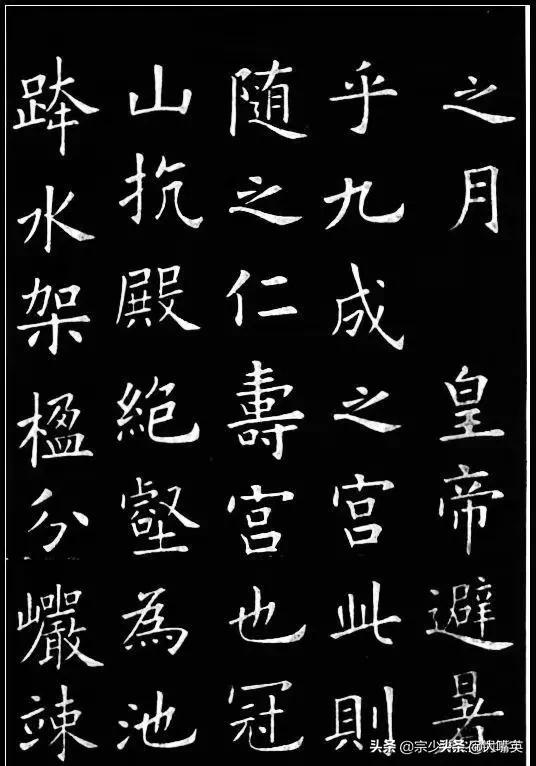 之月　皇帝避暑
乎九成之宫此則
随之仁壽宫也冠
山抗殿絶壑為池
跨水架楹分巗竦
头条 @宗少头条